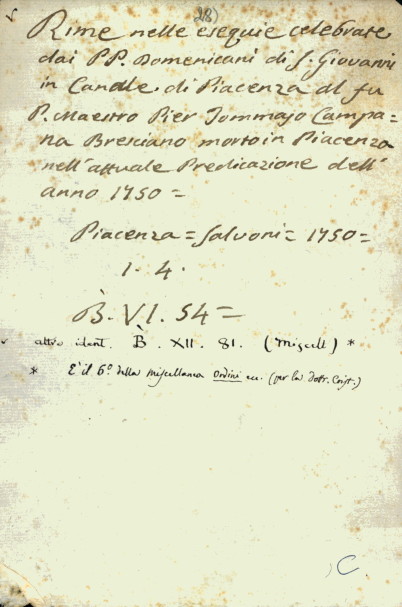 28)
Rime nelle esequie celebrate
dai PP. Domenicani di S. Giovanni
in Canale. di Piacenza al fu
P. Maestro Pier Tommaso Campa=
na Bresciano morto in Piacenza
nell'attuale Predicazione dell'
anno 1750 =
Piacenza = Salvoni = 1750 =
1. 4.
B. VI. 54 =
altro ident. B. XII. 81. (Miscell) *
* È il 6º della Miscellanea Ordini ecc. (per la dottr. Crist.)
C